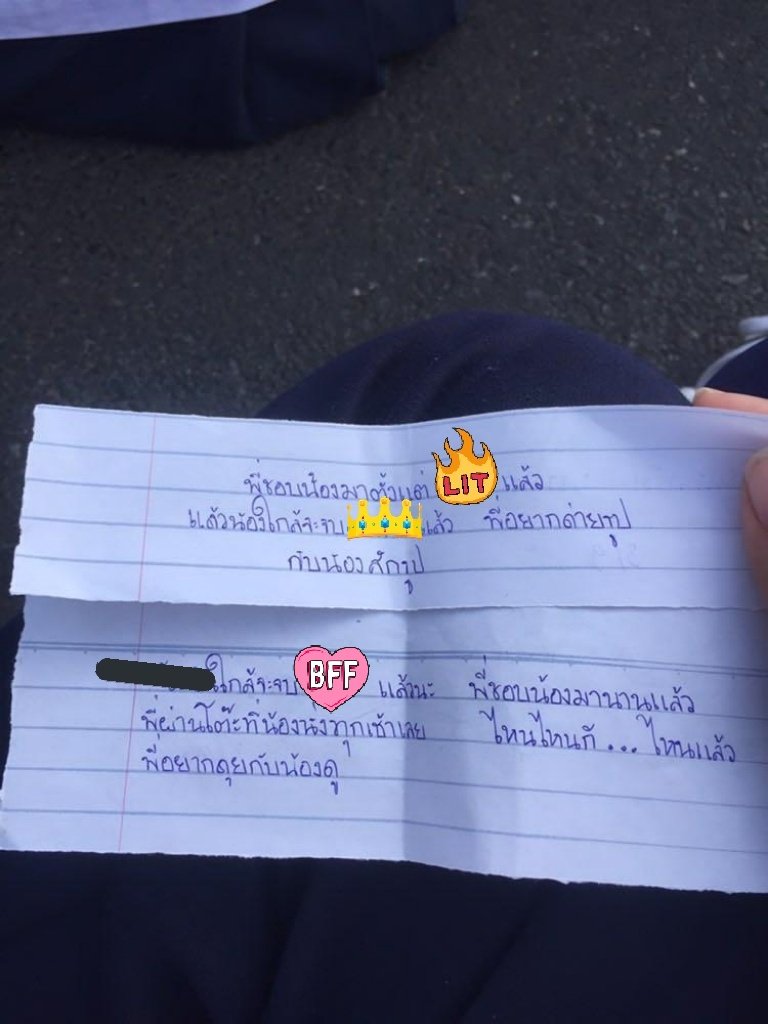 พี่ชอบน้องมาตั้งแต่ LIT แล้ว
แล้วน้องใกล้จะจบ แล้ว พี่อยากถ่ายรูป
กับน้องสักรูป
ใกล้จะจบ BFF แล้วนะ พี่ชอบน้องมานานแล้ว
พี่ผ่านโต๊ะที่น้องนั่งทุกเช้าเลย ไหนไหนก็ ... ไหนแล้ว
พี่อยากคุยกับน้องดู